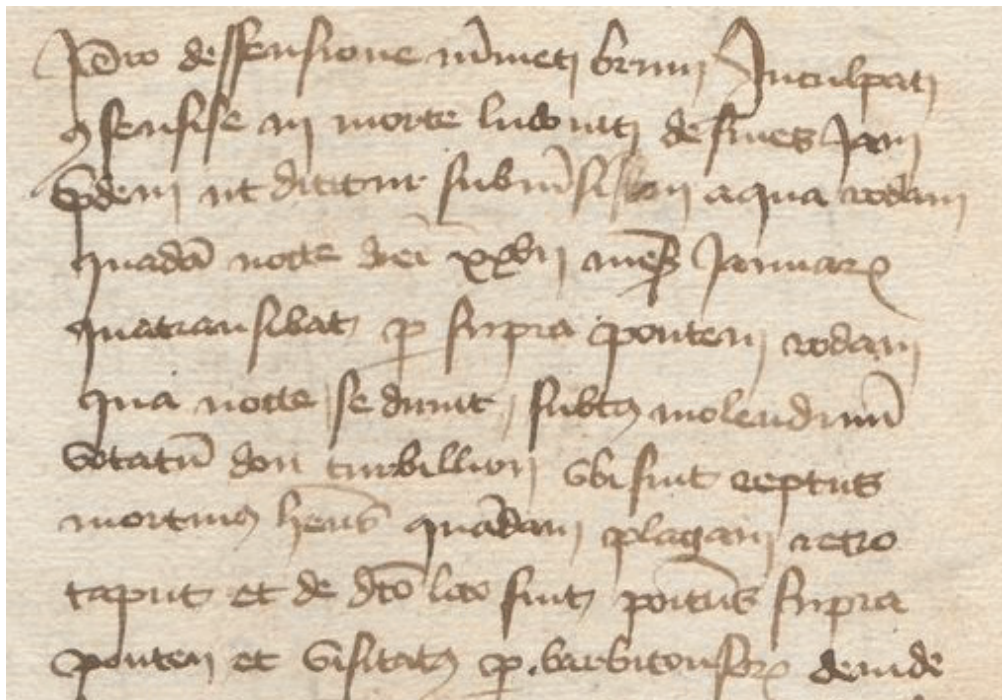 Pro deffensione vincencii bruni Inculpati
consensisse in morte ludovici de fines Jam
pridem ut dicitur submersi in aqua rodani
quadam nocte diei xxvii mensis Januarii
qua transibat per supra pontem rodani
qua nocte se dunt subtus molendinum
votatum don turbillion ubi fuit reptus
mortuus habens quandam plagam retro
caput et de dicto loco fuit portatus supra
pontem et visitatus per barbitonsores deinde